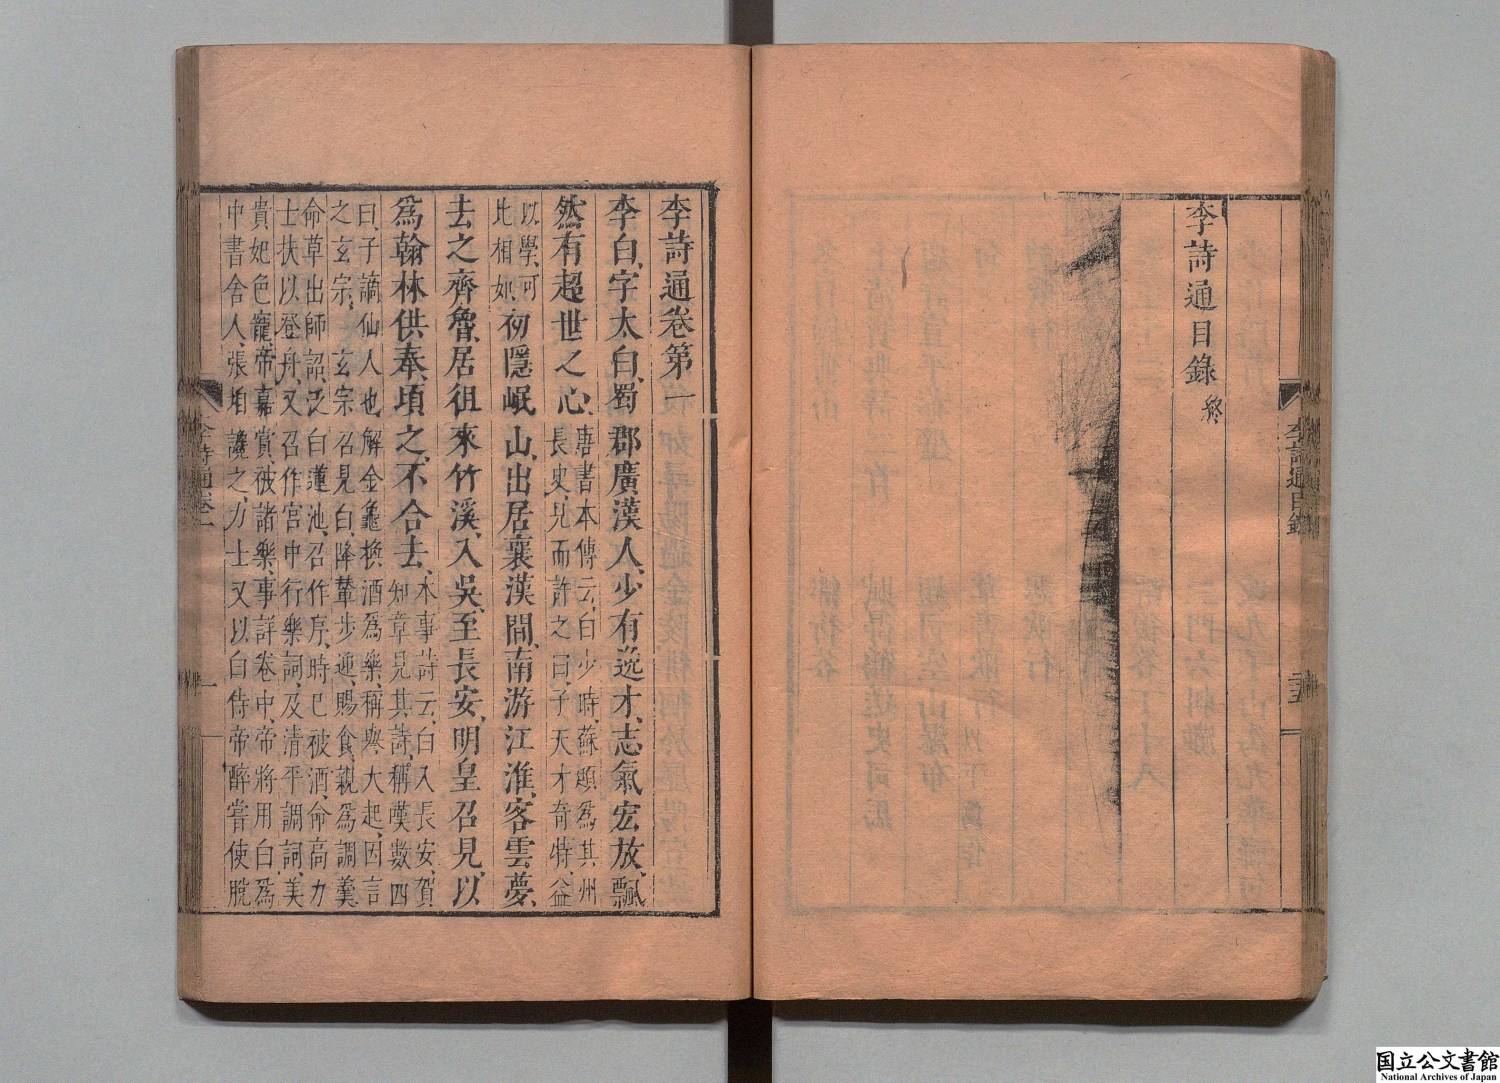 李詩通目錄終
李詩通目錄
二十五
李詩通卷第一
李白、字太白、蜀郡廣漢人、少有逸才、志氣宏放、飄
然有超世之心、唐書本傳云、白少時、蘇頲爲其州
長史、見而許之曰、子天才奇特、益
以學、可
比相如、初隱岷山、出居襄漢間、南游江淮、客雲夢、
去之齊魯、居徂來竹溪、入吳、至長安、明皇召見、以
爲翰林供奉、頃之、不合去、本事詩云、白入長安、賀
知章見其詩、稱嘆數四
曰、子謫仙人也、解金龜換酒爲樂、稱譽大起、因言
之玄宗、玄宗召見白、降輦步迎、賜食、親爲調羹、
命草出師詔、泛白蓮池、召作序、時已被酒、命高力
士扶以登舟、又召作宮中行樂詞、及清平調詞、美
貴妃色、寵、帝嘉賞、被諸樂、事詳卷中、帝將用白爲
中書舍人、張垍讒之、力士又以白侍帝醉、嘗使脫
李詩通卷一
一
国立公文書館
National Archives of Japan